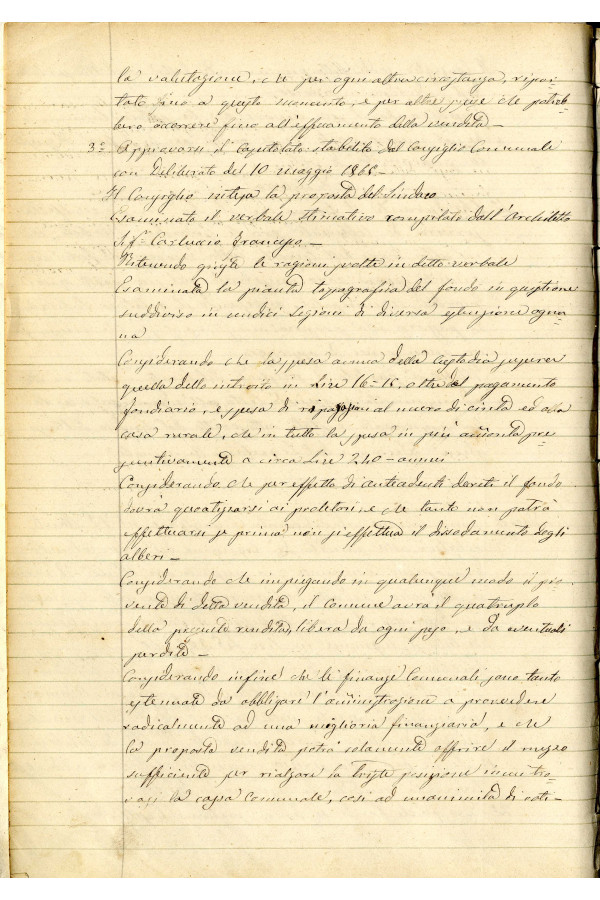 la valutazione, che per ogni altra circostanza, ripor=
tato fino a questo momento, e per altre spese che potreb=
bero occorrere fino all'effettuamento della vendita –
3° Approvarsi il Capitolato stabilito dal Consiglio Comunale
con Deliberato del 10 maggio 1868 –
Il Consiglio intesa la proposta del Sindaco
Esaminato il verbale stimativo compilato dall'Architetto
Sig.r Carluccio Francesco –
Ritenendo giuste le ragioni svolte in detto verbale
Esaminata la pianta topografica del fondo in quistione
suddiviso in undici Sezioni di diversa estenzione ognu=
na
Considerando che la spesa annua della Custodia supera
quella dello introito in Lire 16=15, oltre del pagamento
fondiario, e spesa di ripazioni al muro di cinta ed alla
casa rurale, che in tutto la spesa in più ammonta pre=
suntivamente a circa Lire 240 – annui
Considerando che per effetto di antecedenti dritti il fondo
dovrà quotizzarsi ai proletari, e che tanto non potrà
effettuarsi se prima non si effettua il dissodamento degli
alberi –
Considerando che impiegando in qualunque modo il pro=
vento di detta vendita, il comune avrà il quatruplo
della presente rendita, libera da ogni peso, e da eventuali
perdite –
Considerando infine che le finanze Comunali sono tanto
estenuate da obbligare l'amministrazione a provvedere
radicalmente ad una miglioria finanziaria, e che
la proposta vendita potrà solamente offrire il mezzo
sufficiente per rialzare la triste posizione in cui tro=
vasi la cassa Comunale, così ad unanimità di voti –